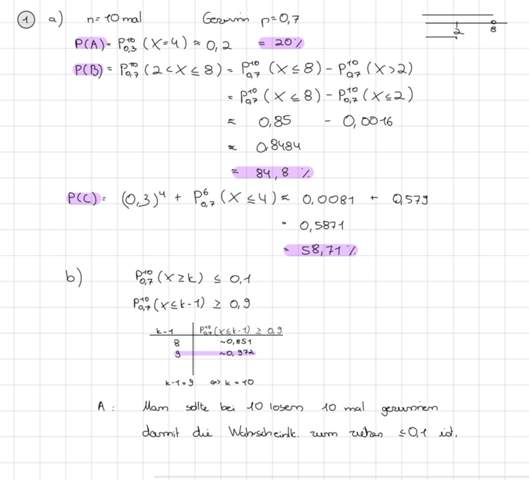 1 a) n=10 mal Gewinn p=0,7
P(A)= P¹⁰₀,₃ (X=4) ≈ 0,2 = 20%
2 8
P(B) = P¹⁰₀,₇ (2<X≤8) = P¹⁰₀,₇ (X≤8) - P¹⁰₀,₇ (X>2)
= P¹⁰₀,₇ (X≤8) - P¹⁰₀,₇ (X≤2)
≈ 0,85 - 0,0016
≈ 0,8484
= 84,8 %
P(C) = (0,3)⁴ + P⁶₀,₇ (X≤4) ≈ 0,0081 + 0,579
= 0,5871
= 58,71 %
b) P¹⁰₀,₇ (X≥k) ≤ 0,1
P¹⁰₀,₇ (X≤k-1) ≥ 0,9
k-1 P¹⁰₀,₇ (X≤k-1) ≥ 0,9
8 ~0,851
9 ~0,972
k-1=9 ⇔ k=10
A: Man sollte bei 10 losen 10 mal gewinnen
damit die Wahrscheinl. zum ziehen ≤0,1 ist.